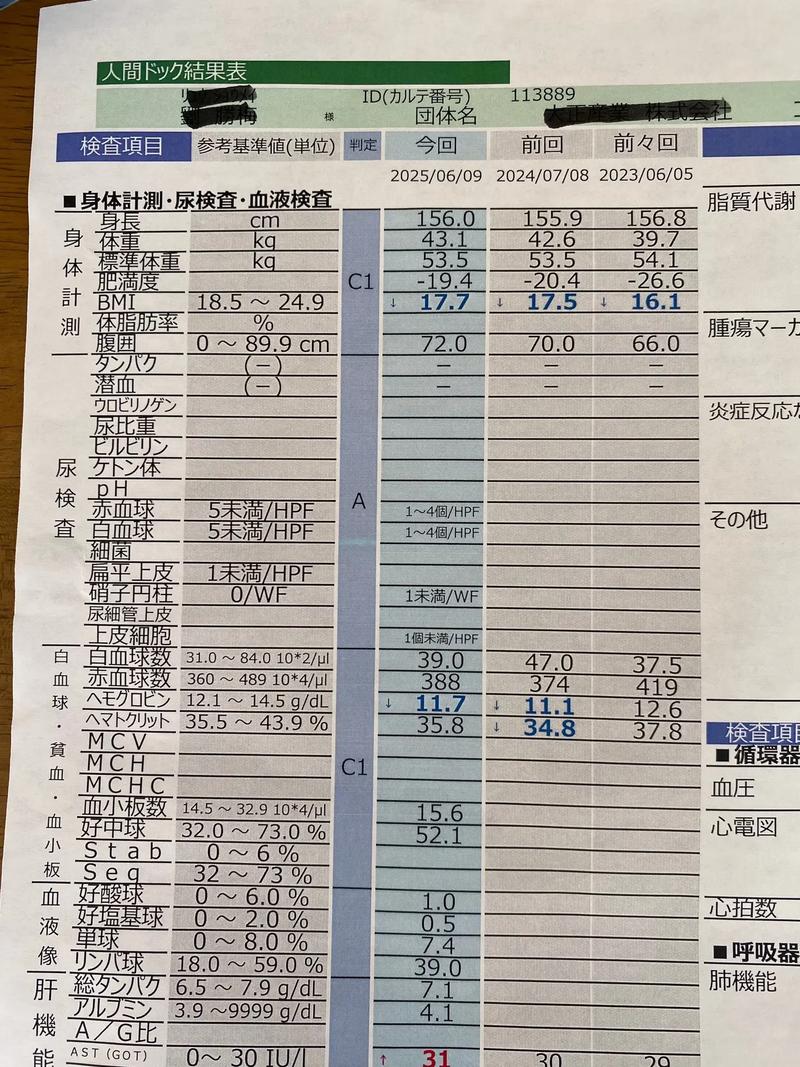 人間ドック結果表
様 ID(カルテ番号) 113889
団体名
検査項目 参考基準値(単位) 判定 今回 前回 前々回
2025/06/09 2024/07/08 2023/06/05
■身体計測・尿検査・血液検査
身体計測
身長 cm 156.0 155.9 156.8
体重 kg 43.1 42.6 39.7
標準体重 kg 53.5 53.5 54.1
肥満度 C1 -19.4 -20.4 -26.6
BMI 18.5 ～ 24.9 ↓ 17.7 ↓ 17.5 ↓ 16.1
体脂肪率 %
腹囲 0 ～ 89.9 cm 72.0 70.0 66.0
尿検査
タンパク (−) − − −
潜血 (−) − − −
ウロビリノゲン
尿比重
ビルビリン
ケトン体
pH A
赤血球 5未満/HPF 1～4個/HPF
白血球 5未満/HPF 1～4個/HPF
細菌
扁平上皮 1未満/HPF
硝子円柱 0/WF 1未満/WF
尿細管上皮
上皮細胞 1個未満/HPF
白血球・貧血・血小板
白血球数 31.0 ～ 84.0 10*2/μl 39.0 47.0 37.5
赤血球数 360 ～ 489 10*4/μl 388 374 419
ヘモグロビン 12.1 ～ 14.5 g/dL ↓ 11.7 ↓ 11.1 12.6
ヘマトクリット 35.5 ～ 43.9 % 35.8 ↓ 34.8 37.8
MCV
MCH C1
MCHC
血小板数 14.5 ～ 32.9 10*4/μl 15.6
好中球 32.0 ～ 73.0 % 52.1
Stab 0 ～ 6 %
Seg 32 ～ 73 %
血液像
好酸球 0 ～ 6.0 % 1.0
好塩基球 0 ～ 2.0 % 0.5
単球 0 ～ 8.0 % 7.4
リンパ球 18.0 ～ 59.0 % 39.0
肝機能
総タンパク 6.5 ～ 7.9 g/dL 7.1
アルブミン 3.9 ～9999 g/dL 4.1
A／G比
AST (GOT) 0～ 30 IU/l ↑ 31 30 29
脂質代謝
腫瘍マーカ
炎症反応
その他
検査項目
■循環器
血圧
心電図
心拍数
■呼吸器
肺機能